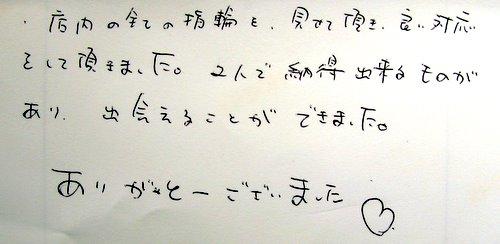 ・店内の全ての指輪を、見せて頂き、良い対応
をして頂きました。2人で納得出来るものが
あり、出会えることができました。
ありがとーございました♡